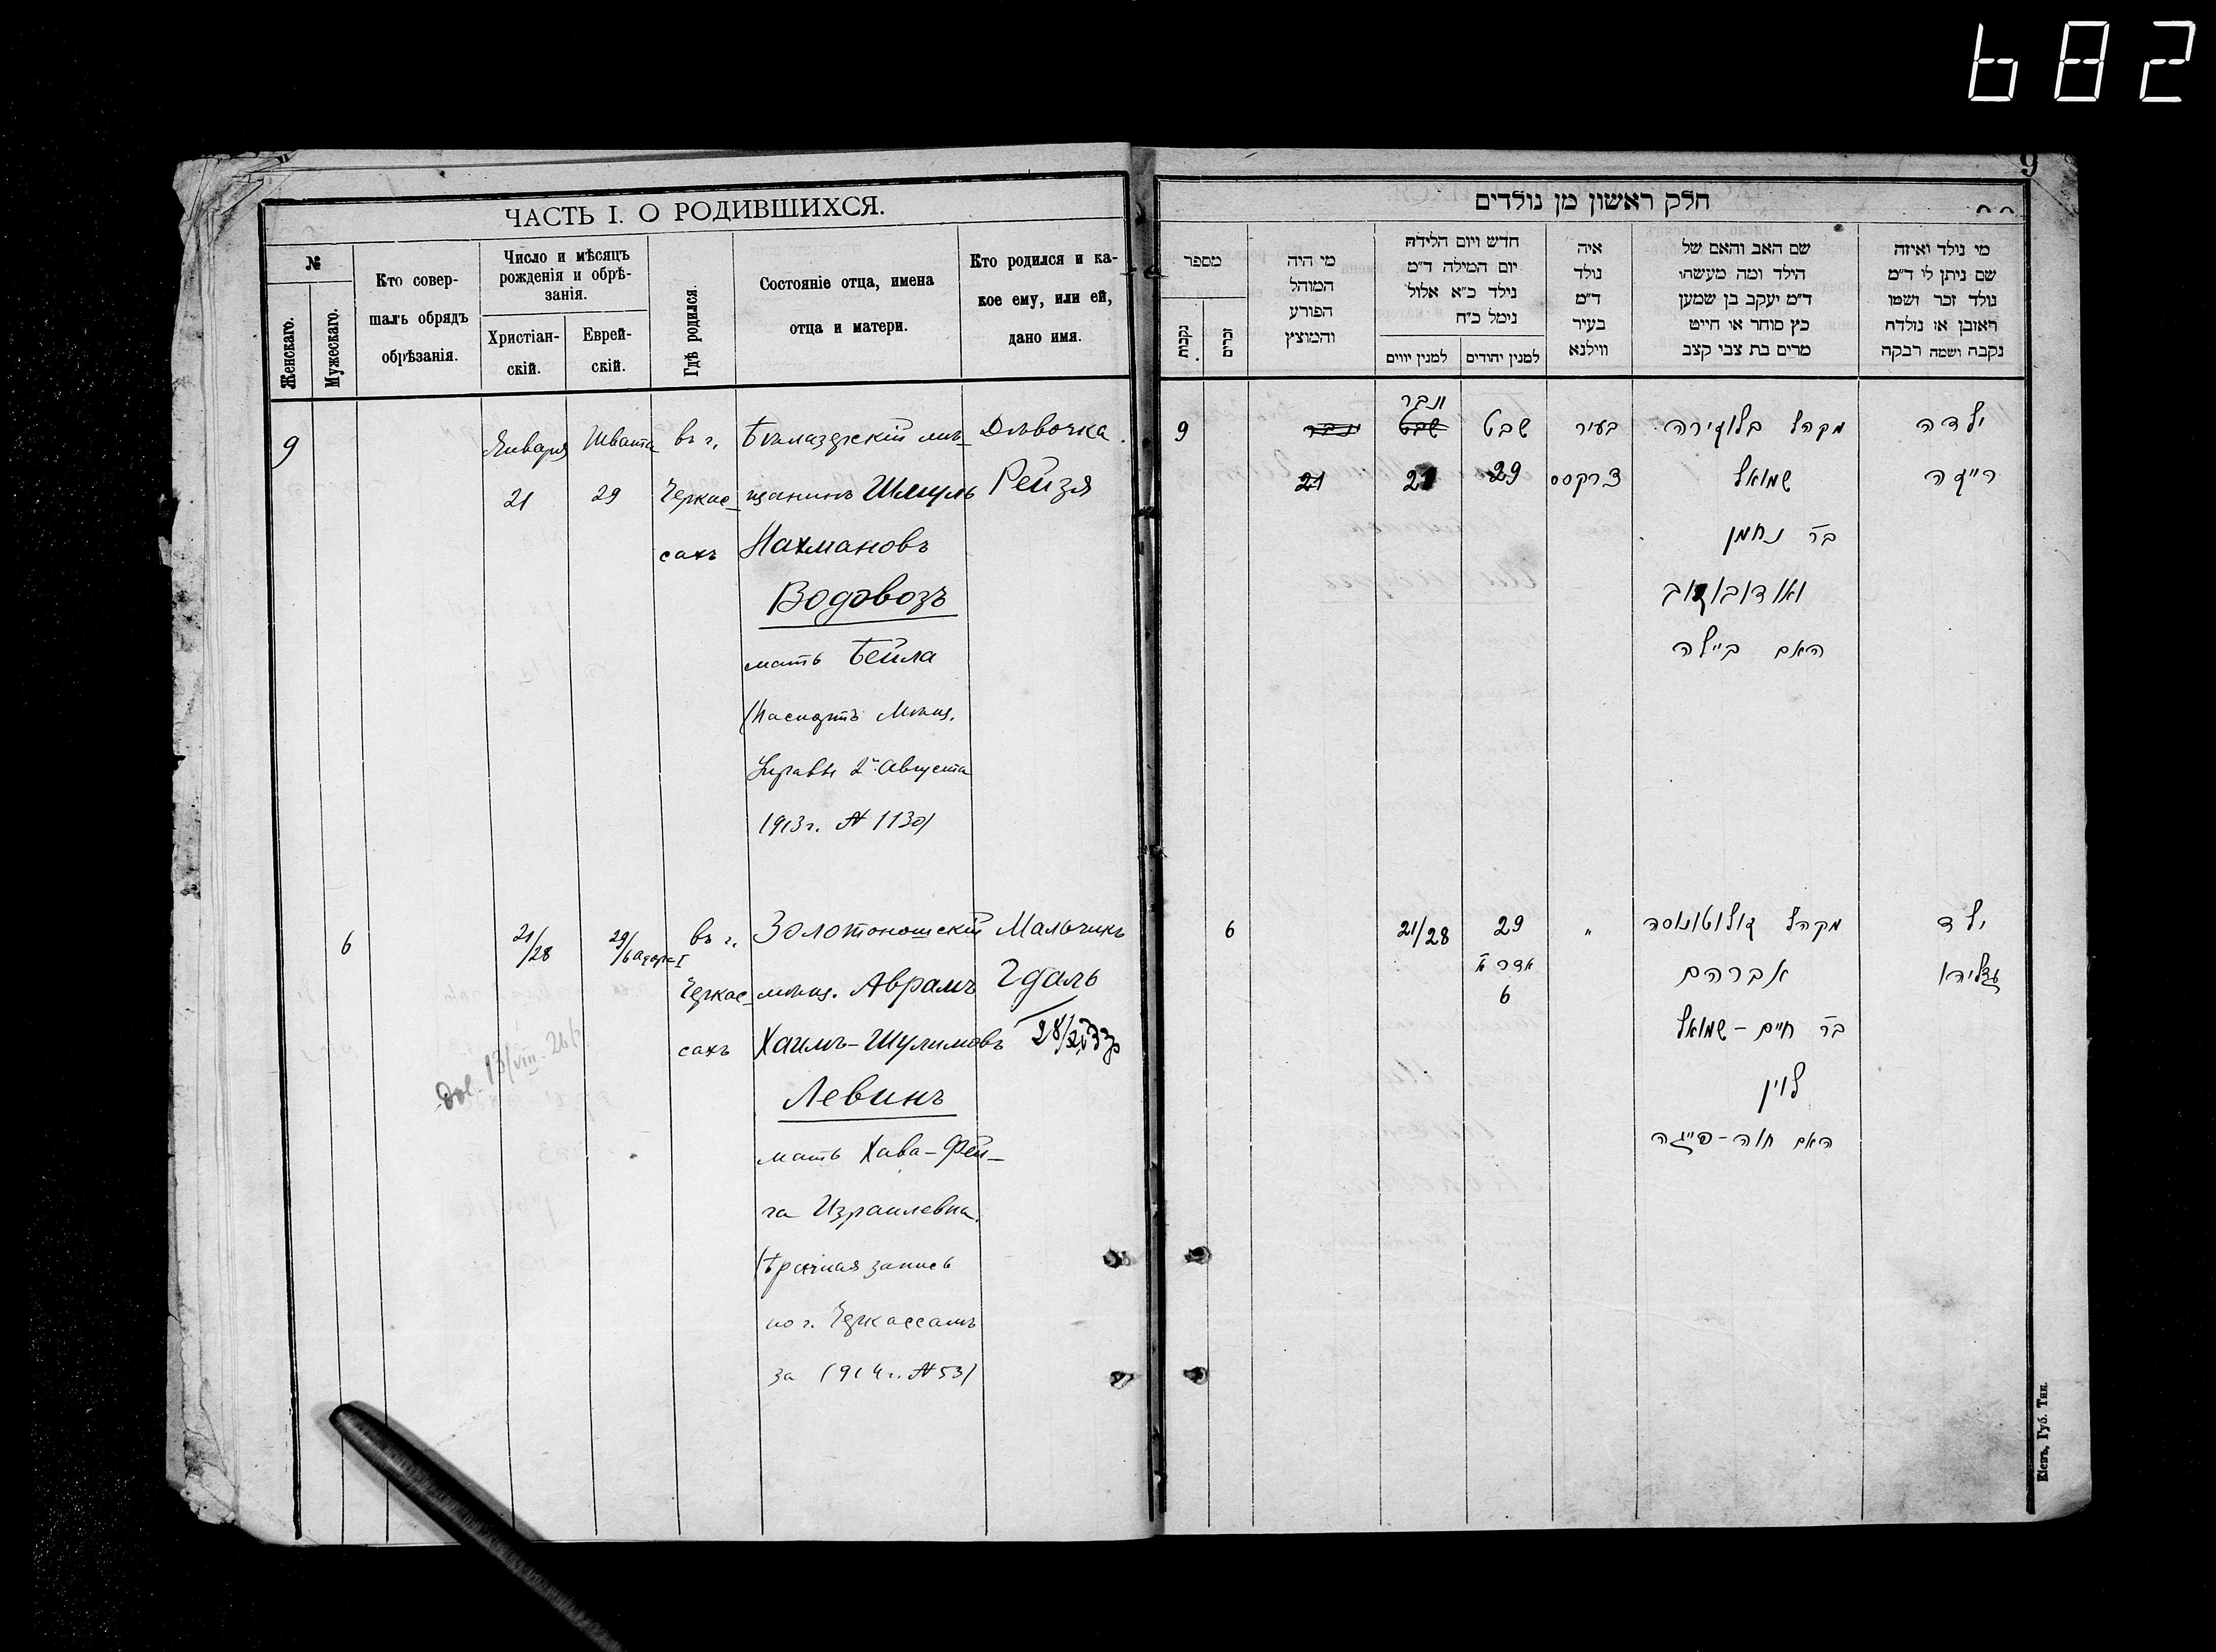 682
9
ЧАСТЬ I. О РОДИВШИХСЯ.
№
Женскаго.
Мужескаго.
Кто совер-
шалъ обрядъ
обрѣзанія.
Число и мѣсяцъ
рожденія и обрѣ-
занія.
Христіан-
скій.
Еврей-
скій.
Гдѣ родился.
Состояніе отца, имена
отца и матери.
Кто родился и ка-
кое ему, или ей,
дано имя.
9
Января
21
Швата
29
въ г.
Черкас-
сахъ
мѣ-
щанинъ Шмуль
Нахмановъ
Водовозъ
мать Бейла
(Паспортъ Мѣщ.
Управы 2го Августа
1913 г. № 1130)
Дѣвочка.
Рейзя
6
21/28
29/6 адара I
въ г.
Черкас-
сахъ
Золотоношскій
мѣщ. Аврамъ
Хаимъ-Шулимовъ
Левинъ
мать Хава-Фей-
га Израилевна.
(Брачная запись
по г. Черкассамъ
за 1914 г. № 53)
Мальчикъ
Гдаль
13/VIII - 26
חלק ראשון מן נולדים
מספר
נקבות
זכרים
מי היה
המוהל
הפורע
והמוצץ
חדש ויום הלידה
יום המילה ד"מ
נילד כ"א אלול
נימל כ"ח
למנין יווים
למנין יהודים
איה
נולד
ד"מ
בעיר
ווילנא
שם האב והאם של
הילד ומה מעשהו
ד"מ יעקב בן שמען
כץ סוחר או חייט
מרים בת צבי קצב
מי נולד ואיזה
שם ניתן לו ד"מ
נולד זכר ושמו
ראובן או נולדה
נקבה ושמה רבקה
9
21
ינבר
שבט
21
שבט
29
בעיר
צרקסס
מקהל
שמואל
בר נחמן
וואדאוואז
האם ביילה
ילדה
רייזה
6
21/28
29
אדר א
6
"
מקהל זולוטונוסה
אברהם
בר חיים-שמואל
לוין
האם חוה-פייגה
ילד
גדליהו
Кіевъ, Губ. Тип.